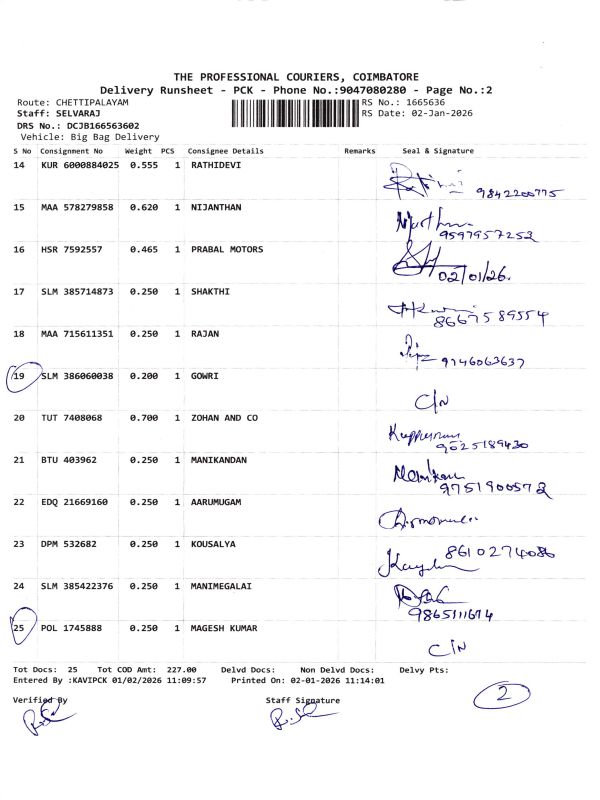 THE PROFESSIONAL COURIERS, COIMBATORE
Delivery Runsheet - PCK - Phone No.:9047080280 - Page No.:2
Route: CHETTIPALAYAM
RS No.: 1665636
Staff: SELVARAJ
RS Date: 02-Jan-2026
DRS No.: DCJB166563602
Vehicle: Big Bag Delivery
S No Consignment No Weight PCS Consignee Details Remarks Seal & Signature
14 KUR 6000884025 0.555 1 RATHIDEVI
9842200775
15 MAA 578279858 0.620 1 NIJANTHAN
9597957253
16 HSR 7592557 0.465 1 PRABAL MOTORS
02/01/26.
17 SLM 385714873 0.250 1 SHAKTHI
8667589554
18 MAA 715611351 0.250 1 RAJAN
9746063637
19 SLM 386060038 0.200 1 GOWRI
C/N
20 TUT 7408068 0.700 1 ZOHAN AND CO
9025189430
21 BTU 403962 0.250 1 MANIKANDAN
9751900572
22 EDQ 21669160 0.250 1 AARUMUGAM
23 DPM 532682 0.250 1 KOUSALYA
8610274086
24 SLM 385422376 0.250 1 MANIMEGALAI
9865111674
25 POL 1745888 0.250 1 MAGESH KUMAR
C/N
Tot Docs: 25 Tot COD Amt: 227.00 Delvd Docs: Non Delvd Docs: Delvy Pts:
Entered By :KAVIPCK 01/02/2026 11:09:57 Printed On: 02-01-2026 11:14:01
2
Verified By Staff Signature